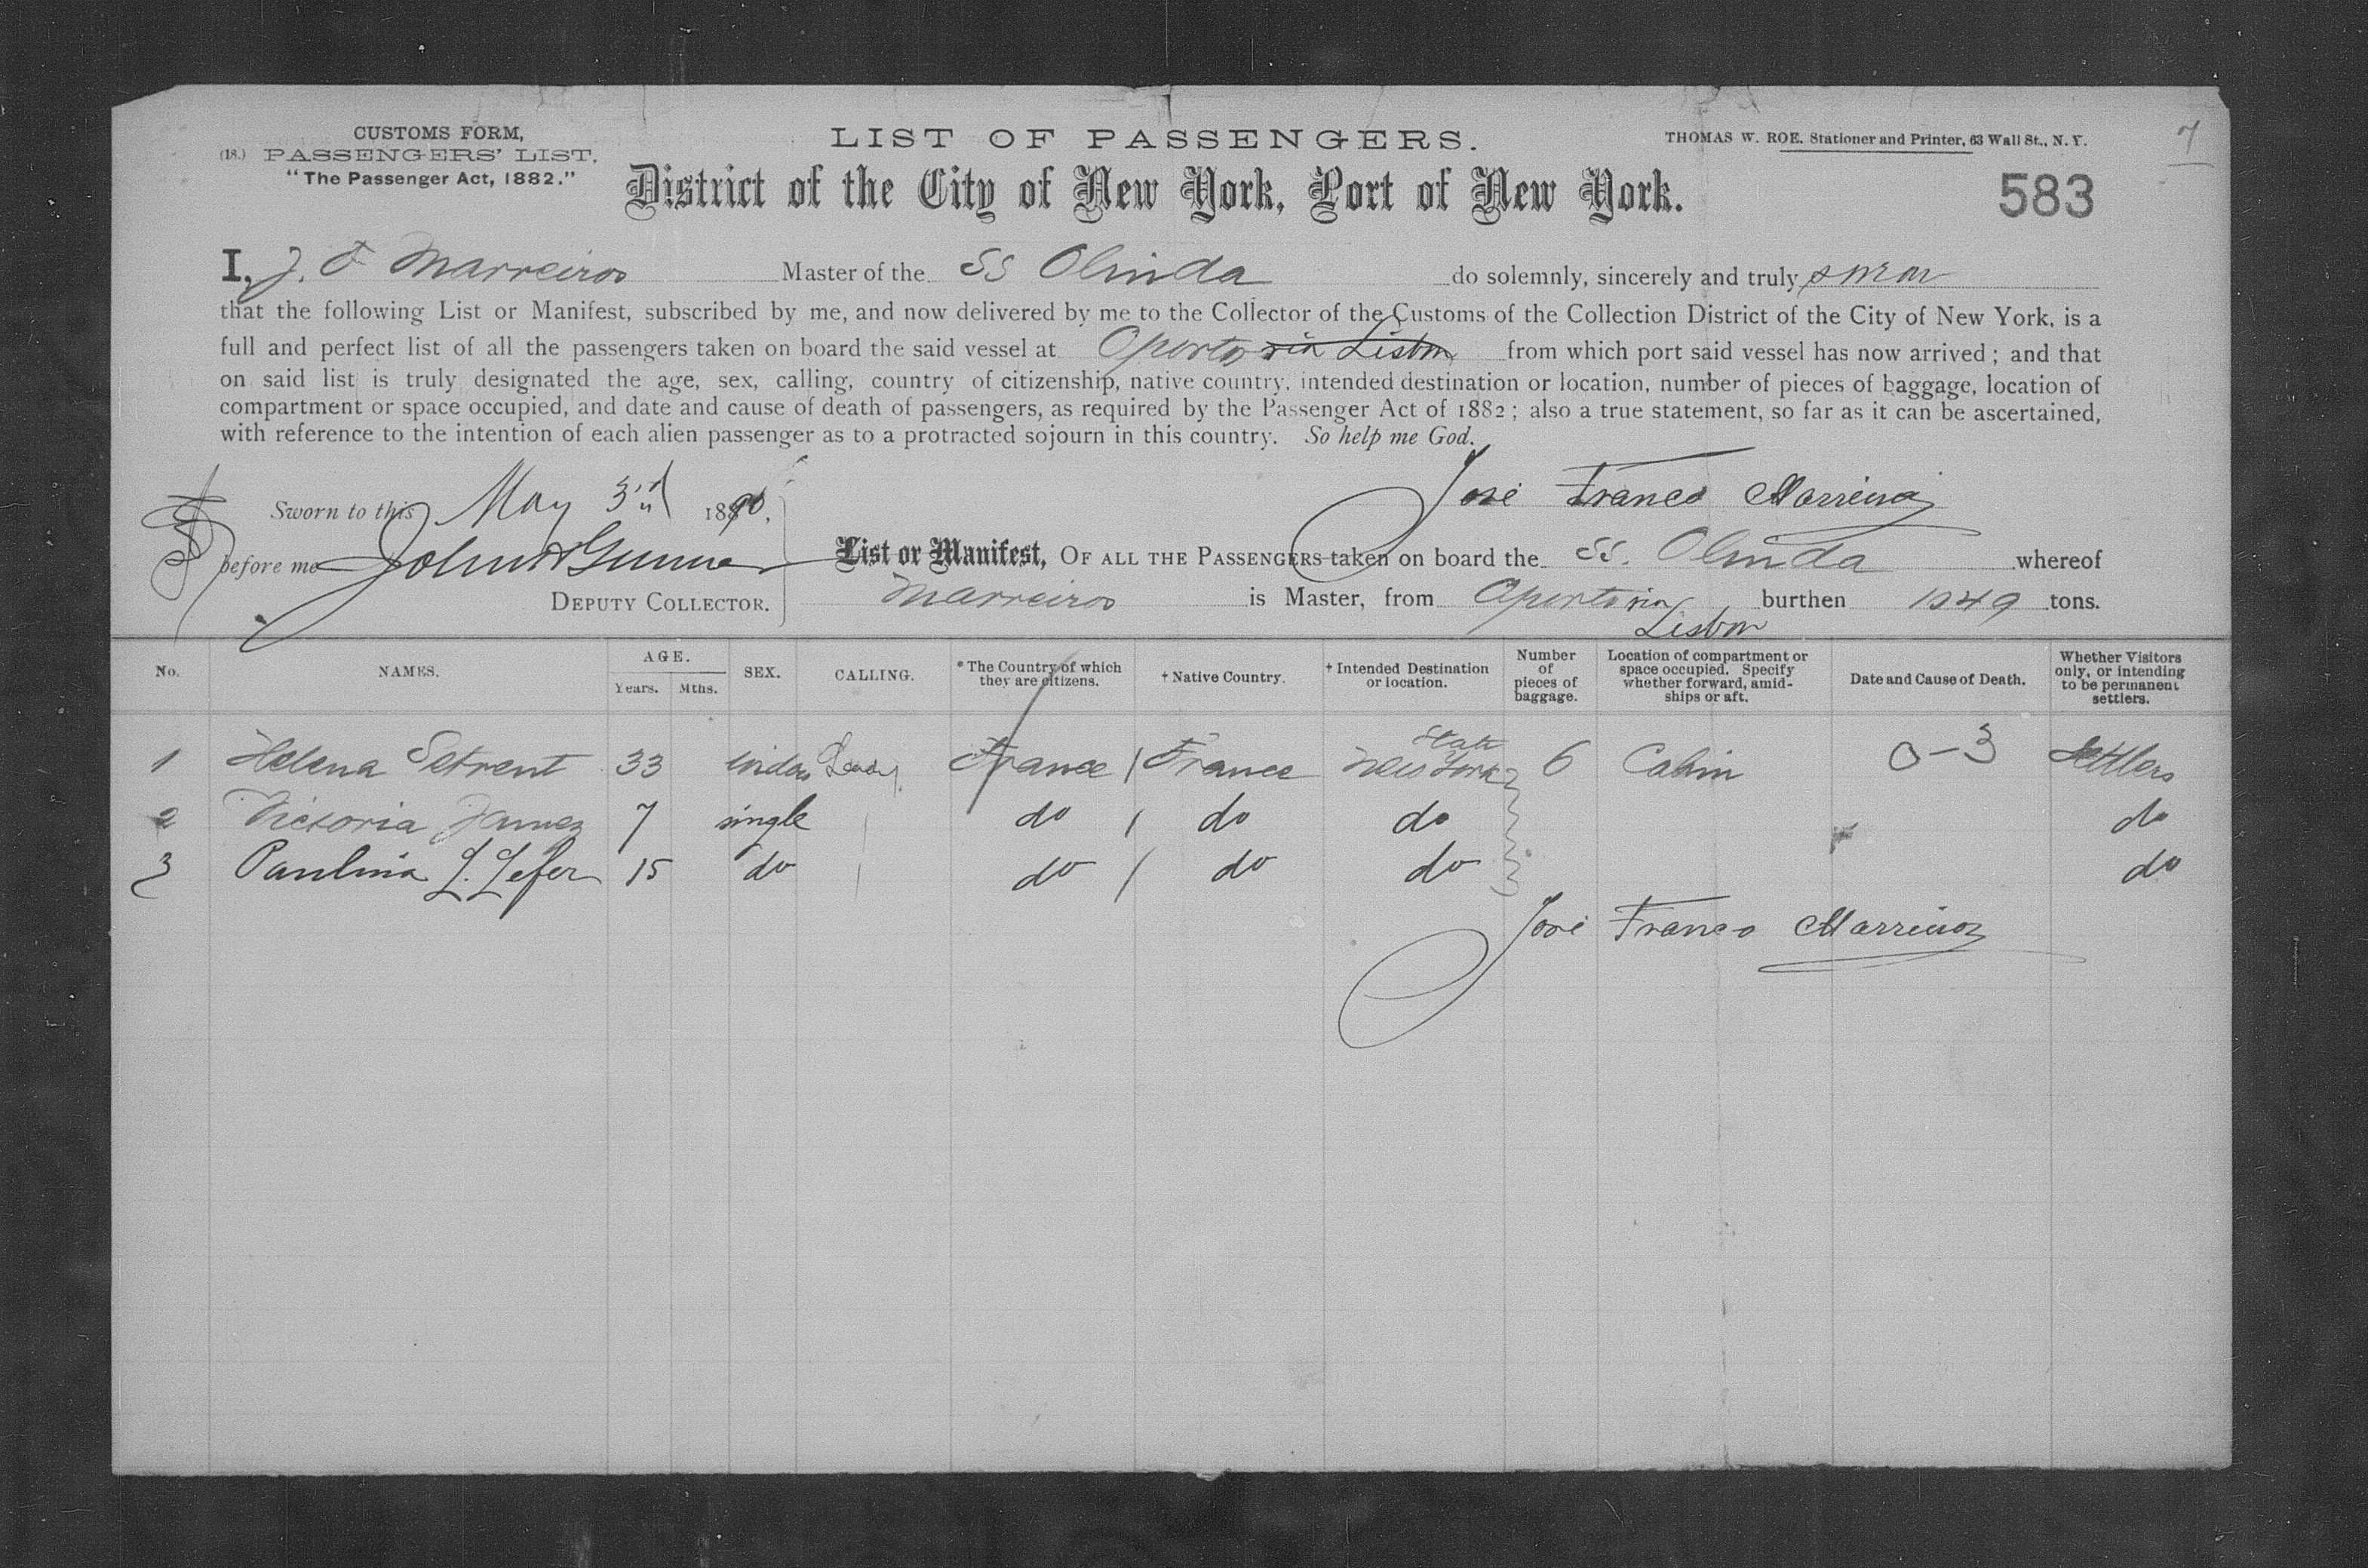 CUSTOMS FORM,
(18.) PASSENGERS' LIST.
"The Passenger Act, 1882."
LIST OF PASSENGERS.
District of the City of New York, Port of New York.
THOMAS W. ROE. Stationer and Printer, 63 Wall St., N. Y.
7
583
I, J. F Marreiros Master of the SS Olinda do solemnly, sincerely and truly swear
that the following List or Manifest, subscribed by me, and now delivered by me to the Collector of the Customs of the Collection District of the City of New York, is a
full and perfect list of all the passengers taken on board the said vessel at Oporto via Lisbon from which port said vessel has now arrived; and that
on said list is truly designated the age, sex, calling, country of citizenship, native country, intended destination or location, number of pieces of baggage, location of
compartment or space occupied, and date and cause of death of passengers, as required by the Passenger Act of 1882; also a true statement, so far as it can be ascertained,
with reference to the intention of each alien passenger as to a protracted sojourn in this country. So help me God.
José Franco Marreiros
Sworn to this May 3rd 1890,
before me John
DEPUTY COLLECTOR.
List or Manifest, OF ALL THE PASSENGERS taken on board the SS. Olinda whereof
Marreiros is Master, from Oporto via Lisbon burthen tons.
No. NAMES. AGE. Years. Mths. SEX. CALLING. *The Country of which they are citizens. †Native Country. †Intended Destination or location. Number of pieces of baggage. Location of compartment or space occupied. Specify whether forward, amidships or aft. Date and Cause of Death. Whether Visitors only, or intending to be permanent settlers.
1 Helena Setrent 33 Lady France / France State New York 6 Cabin 0-3 Settlers
2 Victoria 7 single do / do do do
3 Paulina L. Lefer 15 do do / do do do
José Franco Marreiros